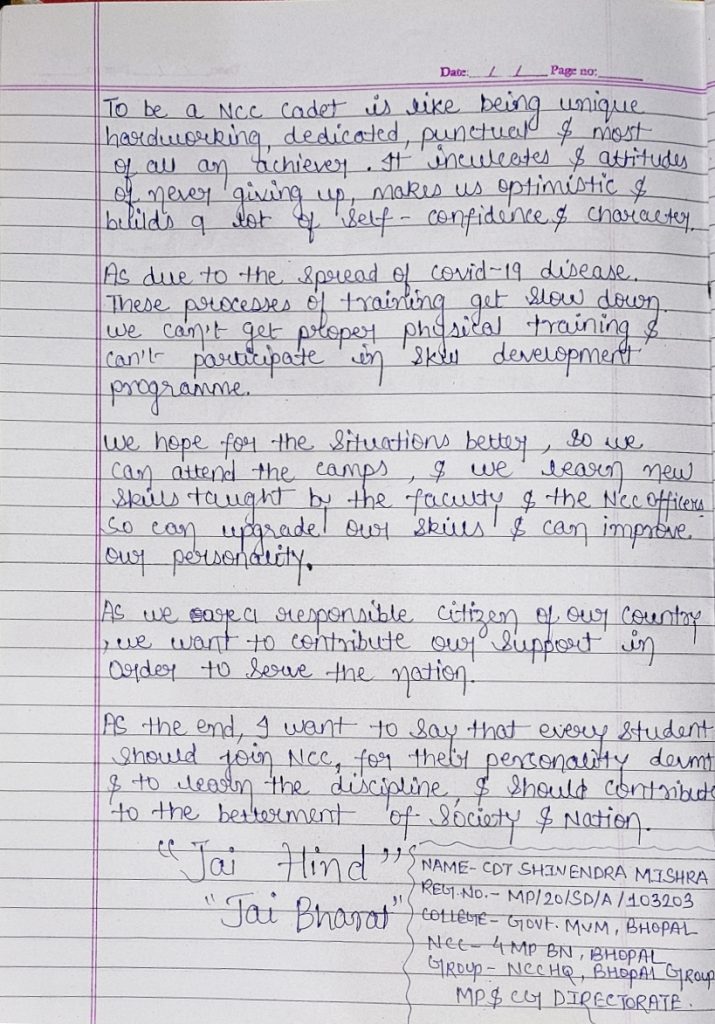 Date: / / Page no:
To be a NCC Cadet is like being unique
hardworking, dedicated, punctual & most
of all an achiever. It inculcates & attitudes
of never giving up, makes us optimistic &
builds a lot of self-confidence & character.
As due to the spread of covid-19 disease.
These processes of training get slow down.
we can't get proper physical training &
can't participate in skill development
programme.
We hope for the situations better, so we
can attend the camps, & we learn new
skills taught by the faculty & the NCC officers
So can upgrade our skills & can improve
our personality.
As we are a responsible citizen of our country
, we want to contribute our support in
order to serve the nation.
As the end, I want to say that every student
should join NCC, for their personality devmt
& to learn the discipline, & should contribute
to the betterment of Society & Nation.
"Jai Hind"
"Jai Bharat"
NAME- CDT SHIVENDRA MISHRA
REGT.NO.- MP/20/SD/A/103203
COLLEGE- GOVT. MVM, BHOPAL
NCC- 4 MP BN, BHOPAL
GROUP- NCC HQ, BHOPAL GROUP
MP & CG DIRECTORATE.